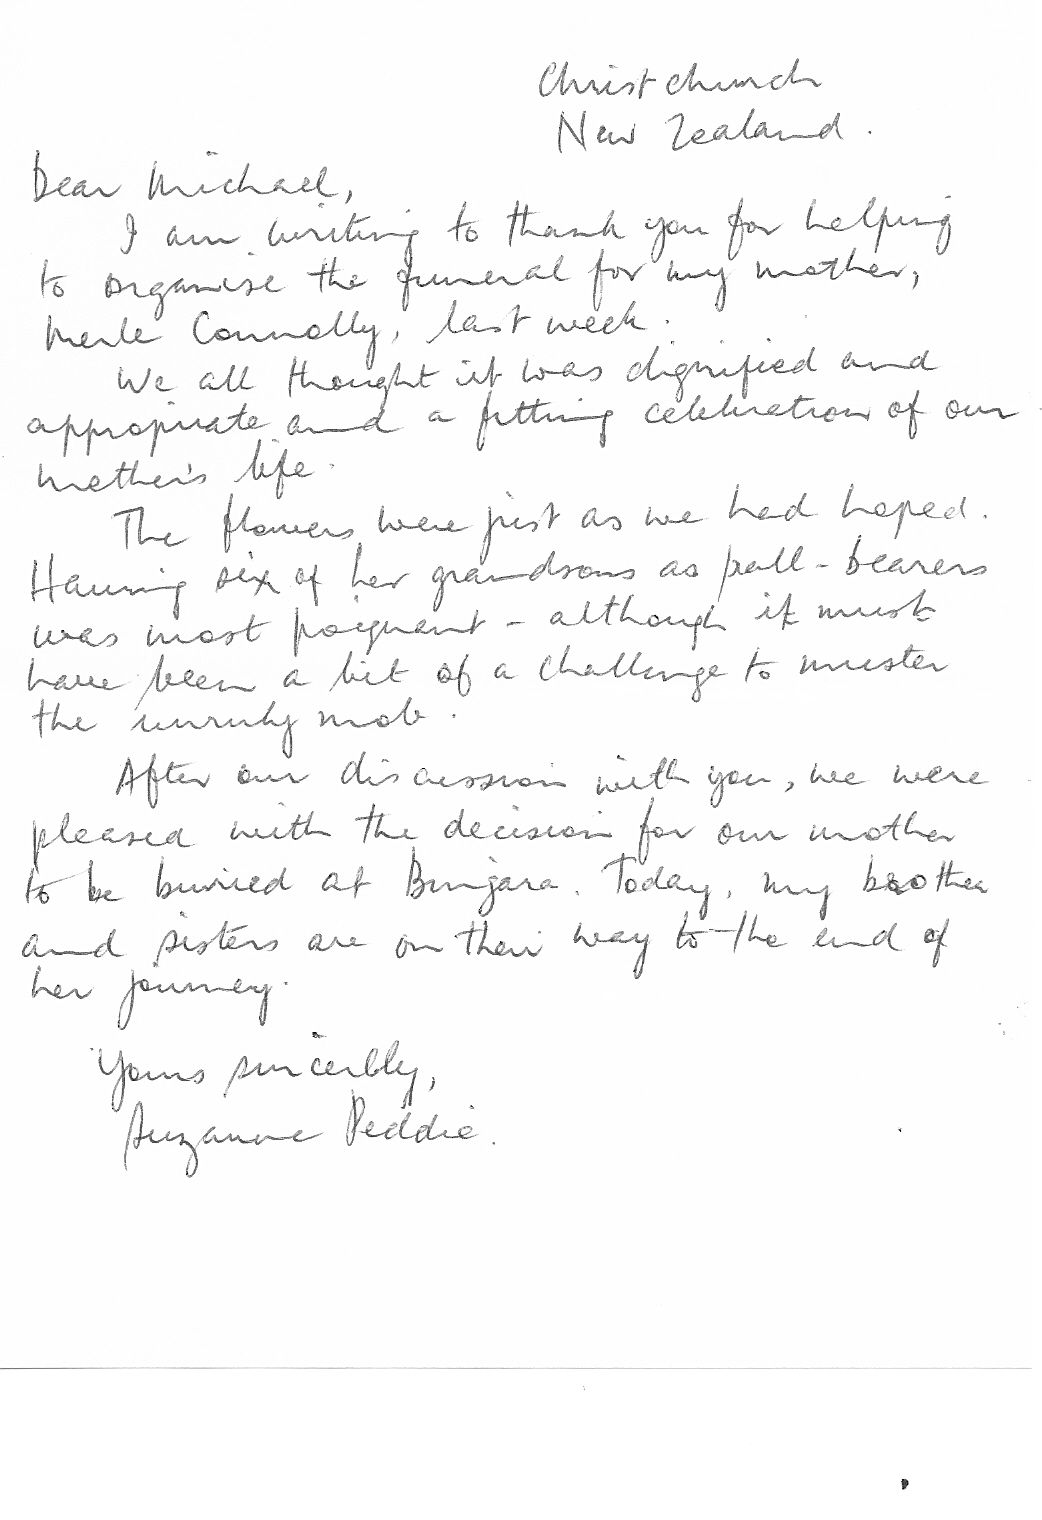 Christchurch
New Zealand.
Dear Michael,
I am writing to thank you for helping
to organise the funeral for my mother,
Merle Connolly, last week.
We all thought it was dignified and
appropriate and a fitting celebration of our
mother's life.
The flowers were just as we had hoped.
Having six of her grandsons as pall-bearers
was most poignant - although it must
have been a bit of a challenge to muster
the unruly mob.
After our discussion with you, we were
pleased with the decision for our mother
to be buried at Bingara. Today, my brother
and sisters are on their way to the end of
her journey.
Yours sincerely,
Suzanne Peddie.